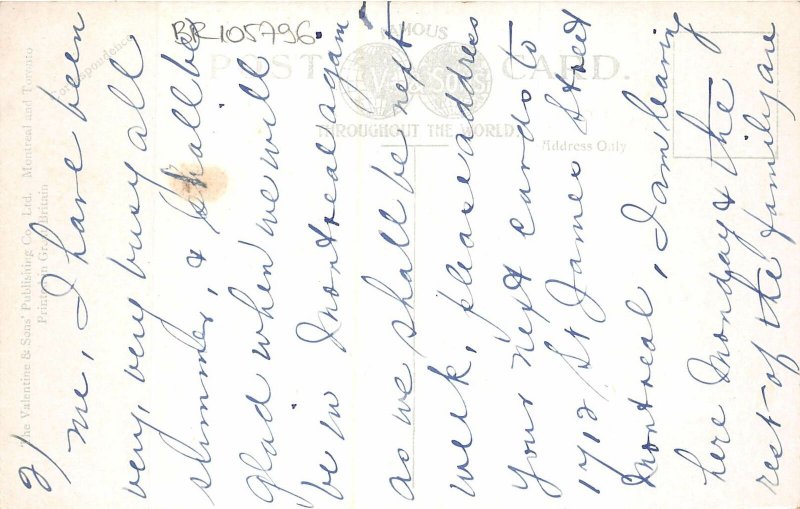 BR105796
FAMOUS
POST CARD.
THROUGHOUT THE WORLD.
Correspondence
Address Only
The Valentine & Sons' Publishing Co., Ltd. Montreal and Toronto
Printed in Great Britain
2)
me, I have been
very, very busy all
summer, & shall be
glad when we will
be in Montreal again
as we shall be next
week, please address
your next cards to
1712 St James Street
Montreal, I am leaving
here Monday & the
rest of the family are